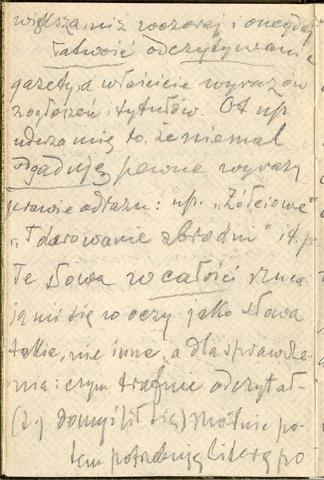 większa, niż wczoraj i onegdaj
łatwość odczytywania
gazety, a właściwie wyrazów
z ogłoszeń i tytułów. Ot np.
uderza mię to, że niemal
zgaduję pewne wyrazy
prawie odrazu: np. „Żółciowe"
„Darowanie zbrodni" i t. p.
Te słowa w całości rzuca-
ją mi się w oczy jako słowa
takie, nie inne, a dla sprawdze-
nia: czym trafnie odczytał
(t. j. domyślił się) później po-
tem potrzebuję literę po